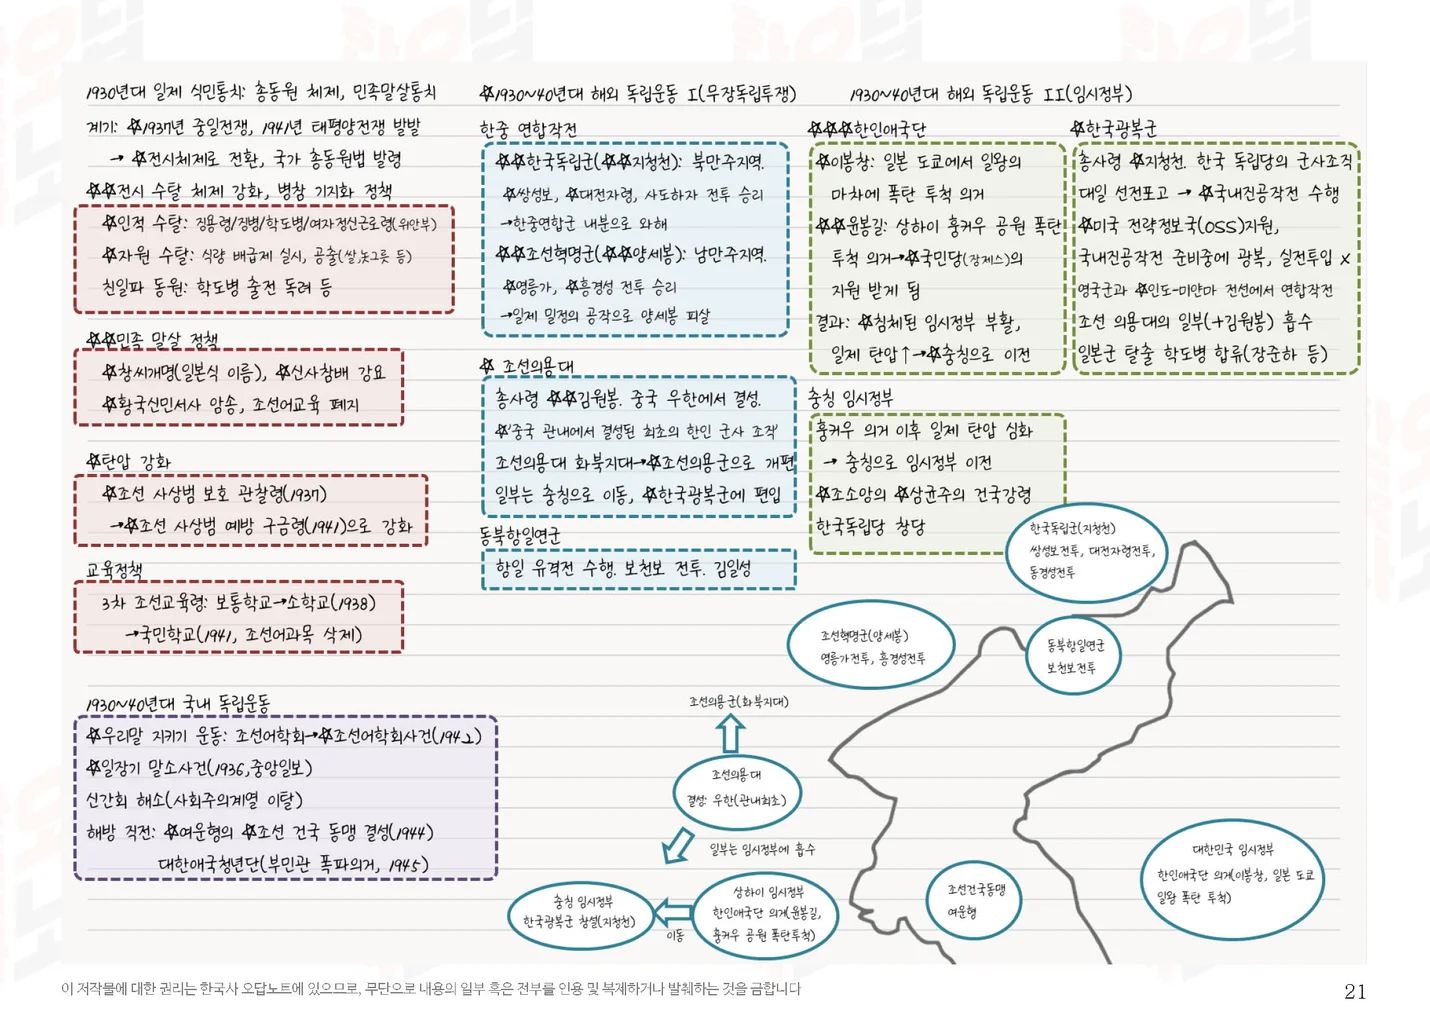 1930년대 일제 식민통치: 총동원 체제, 민족말살통치
계기: ☆1937년 중일전쟁, 1941년 태평양전쟁 발발
→ ☆전시체제로 전환, 국가 총동원법 발령
☆☆전시 수탈 체제 강화, 병참 기지화 정책
☆인적 수탈: 징용령/징병/학도병/여자정신근로령(위안부)
☆자원 수탈: 식량 배급제 실시, 공출(쌀,놋그릇 등)
친일파 동원: 학도병 출전 독려 등
☆☆민족 말살 정책
☆창씨개명(일본식 이름), ☆신사참배 강요
☆황국신민서사 암송, 조선어교육 폐지
☆탄압 강화
☆조선 사상범 보호 관찰령(1937)
→☆조선 사상범 예방 구금령(1941)으로 강화
교육정책
3차 조선교육령: 보통학교→소학교(1938)
→국민학교(1941, 조선어과목 삭제)
1930~40년대 국내 독립운동
☆우리말 지키기 운동: 조선어학회→☆조선어학회사건(1942)
☆일장기 말소사건(1936,중앙일보)
신간회 해소(사회주의계열 이탈)
해방 직전: ☆여운형의 ☆조선 건국 동맹 결성(1944)
대한애국청년단(부민관 폭파의거, 1945)
☆1930~40년대 해외 독립운동 I(무장독립투쟁)
한중 연합작전
☆☆한국독립군(☆☆지청천): 북만주지역.
☆쌍성보, ☆대전자령, 사도하자 전투 승리
→한중연합군 내분으로 와해
☆☆조선혁명군(☆☆양세봉): 남만주지역.
☆영릉가, ☆흥경성 전투 승리
→일제 밀정의 공작으로 양세봉 피살
☆ 조선의용대
총사령 ☆☆김원봉. 중국 우한에서 결성.
☆'중국 관내에서 결성된 최초의 한인 군사 조직'
조선의용대 화북지대→☆조선의용군으로 개편
일부는 충칭으로 이동, ☆한국광복군에 편입
동북항일연군
항일 유격전 수행. 보천보 전투. 김일성
1930~40년대 해외 독립운동 II(임시정부)
☆☆☆한인애국단
☆이봉창: 일본 도쿄에서 일왕의
마차에 폭탄 투척 의거
☆☆윤봉길: 상하이 훙커우 공원 폭탄
투척 의거→☆국민당(장제스)의
지원 받게 됨
결과: ☆침체된 임시정부 부활,
일제 탄압↑→☆충칭으로 이전
충칭 임시정부
훙커우 의거 이후 일제 탄압 심화
→ 충칭으로 임시정부 이전
☆조소앙의 ☆삼균주의 건국강령
한국독립당 창당
☆한국광복군
총사령 ☆지청천. 한국 독립당의 군사조직
대일 선전포고 → ☆국내진공작전 수행
☆미국 전략정보국(OSS)지원,
국내진공작전 준비중에 광복, 실전투입 X
영국군과 ☆인도-미얀마 전선에서 연합작전
조선 의용대의 일부(+김원봉) 흡수
일본군 탈출 학도병 합류(장준하 등)
한국독립군(지청천)
쌍성보전투, 대전자령전투,
동경성전투
조선혁명군(양세봉)
영릉가전투, 흥경성전투
동북항일연군
보천보전투
조선의용군(화북지대)
조선의용대
결성: 우한(관내최초)
일부는 임시정부에 흡수
충칭 임시정부
한국광복군 창설(지청천)
이동
상하이 임시정부
한인애국단 의거(윤봉길,
훙커우 공원 폭탄투척)
조선건국동맹
여운형
대한민국 임시정부
한인애국단 의거(이봉창, 일본 도쿄
일왕 폭탄 투척)
이 저작물에 대한 권리는 한국사 오답노트에 있으므로, 무단으로 내용의 일부 혹은 전부를 인용 및 복제하거나 발췌하는 것을 금합니다
21